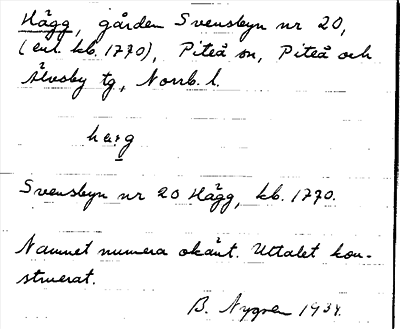 Hägg, gården Svensbyn nr 20,
(enl. kb. 1770), Piteå sn, Piteå och
Älvsby tg, Norrb. l.
Svensbyn nr 20 Hägg, kb. 1770.
Namnet numera okänt. Uttalet kon-
struerat.
B. Nygren 1934.